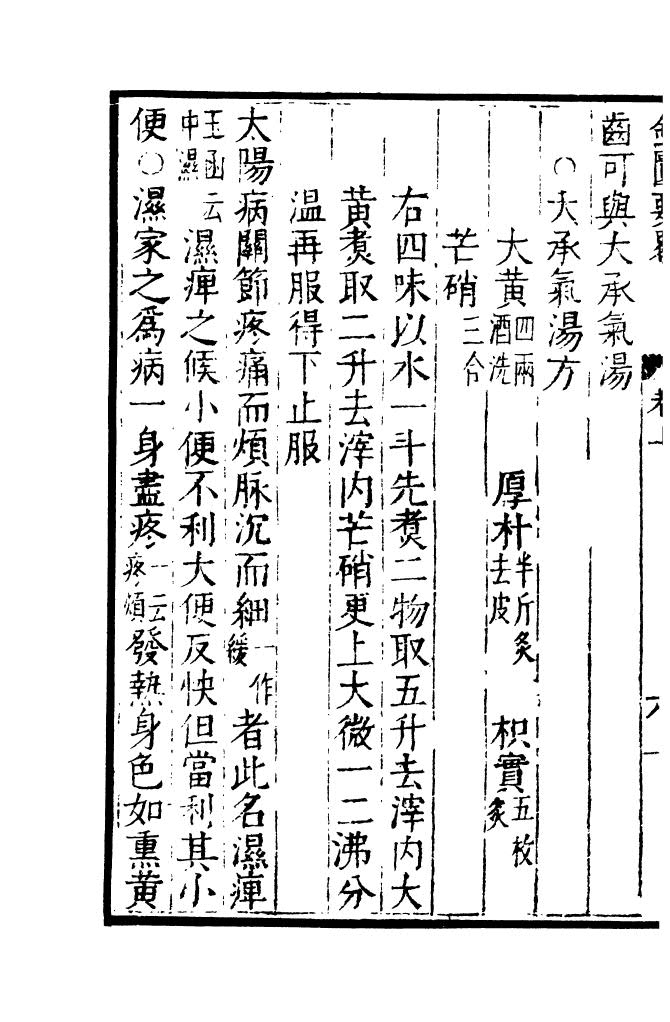 齒可與大承氣湯
○大承氣湯方
大黃四兩酒洗 厚朴半斤炙去皮 枳實五枚炙
芒硝三合
右四味以水一斗先煑二物取五升去滓內大
黃煑取二升去滓內芒硝更上大微一二沸分
温再服得下止服
太陽病關節疼痛而煩脉沉而細一作緩者此名濕痺
玉函云中濕濕痺之候小便不利大便反快但當利其小
便○濕家之爲病一身盡疼一云疼煩發熱身色如熏黃